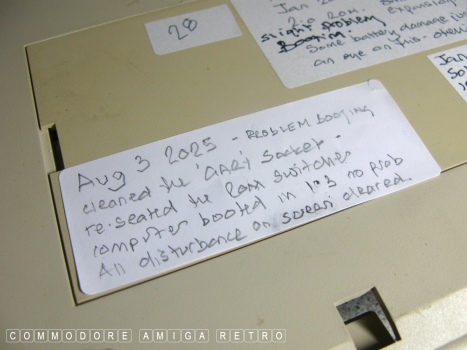 28
Jan 20
slight problem
Booting.
Some battery damage
an eye on this.
Jan
Aug 3 2025 - PROBLEM BOOTING
cleaned the 'GARY' socket -
re-seated the ROM switcher
computer booted in 1.3 no prob
All disturbance on screen cleared.
COMMODORE AMIGA RETRO